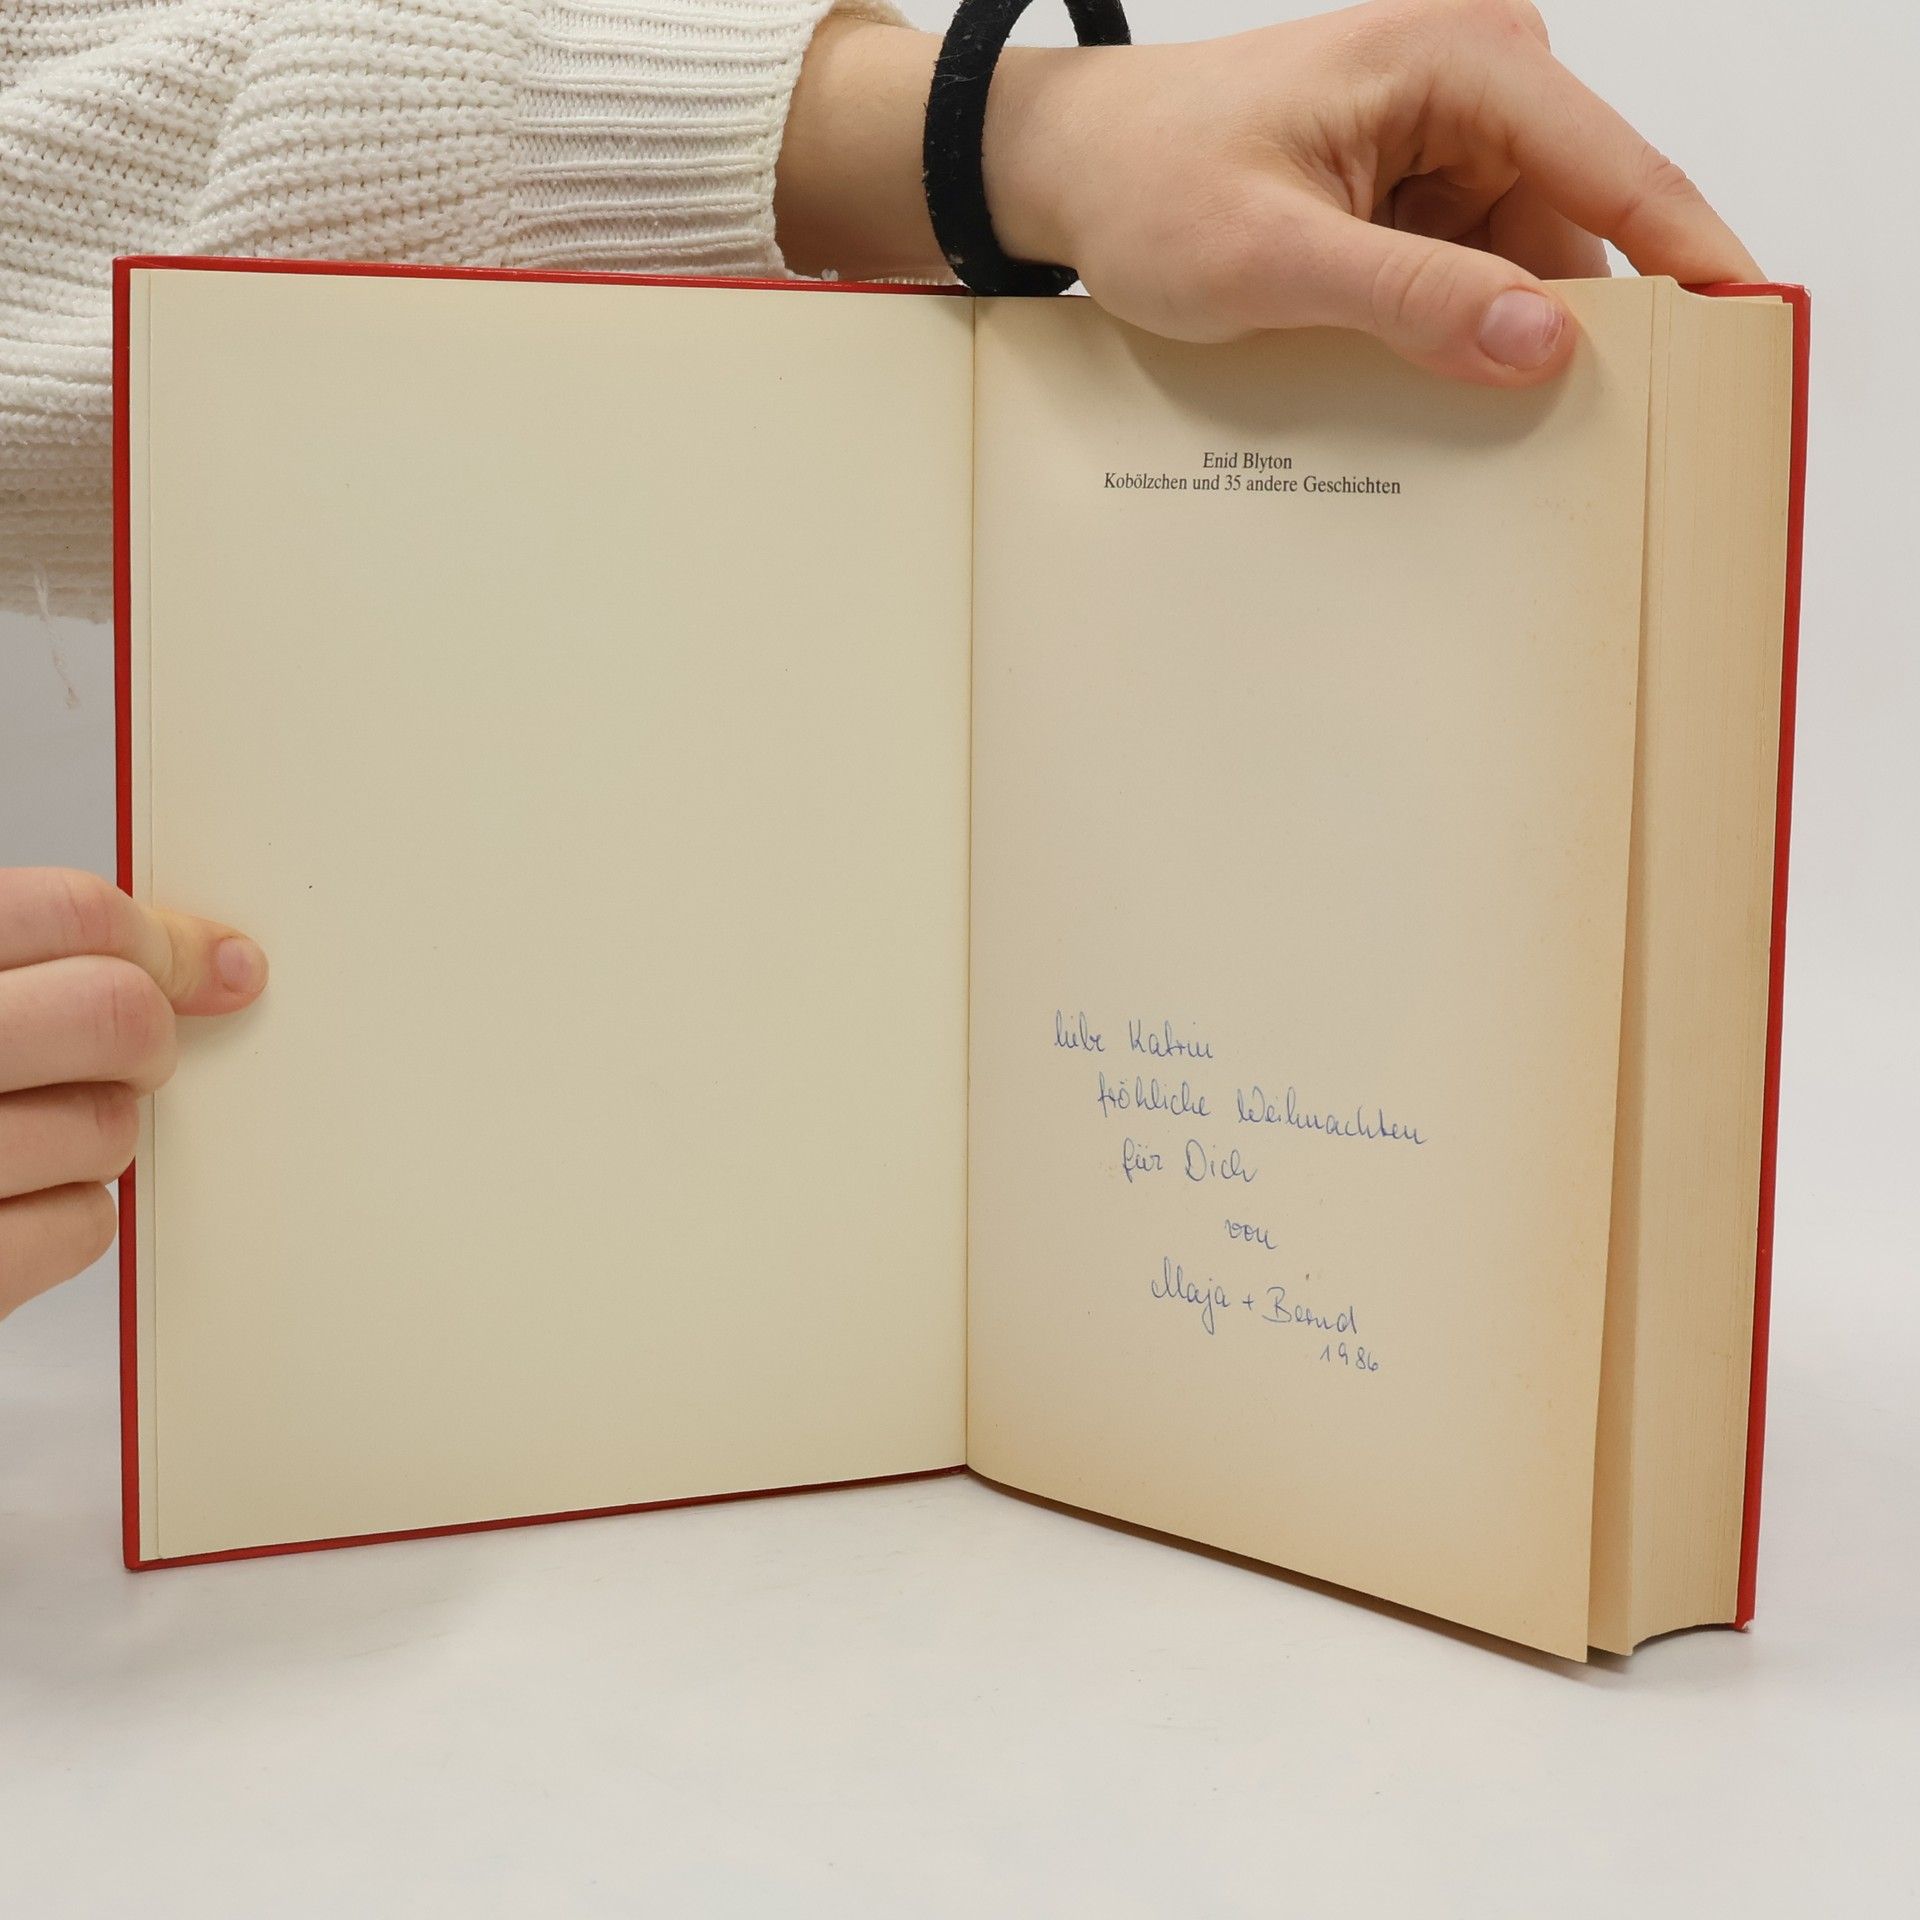 Enid Blyton
Kobölzchen und 35 andere Geschichten
liebe Katrin
fröhliche Weihnachten
für Dich
von
Maja + Bernd
1986